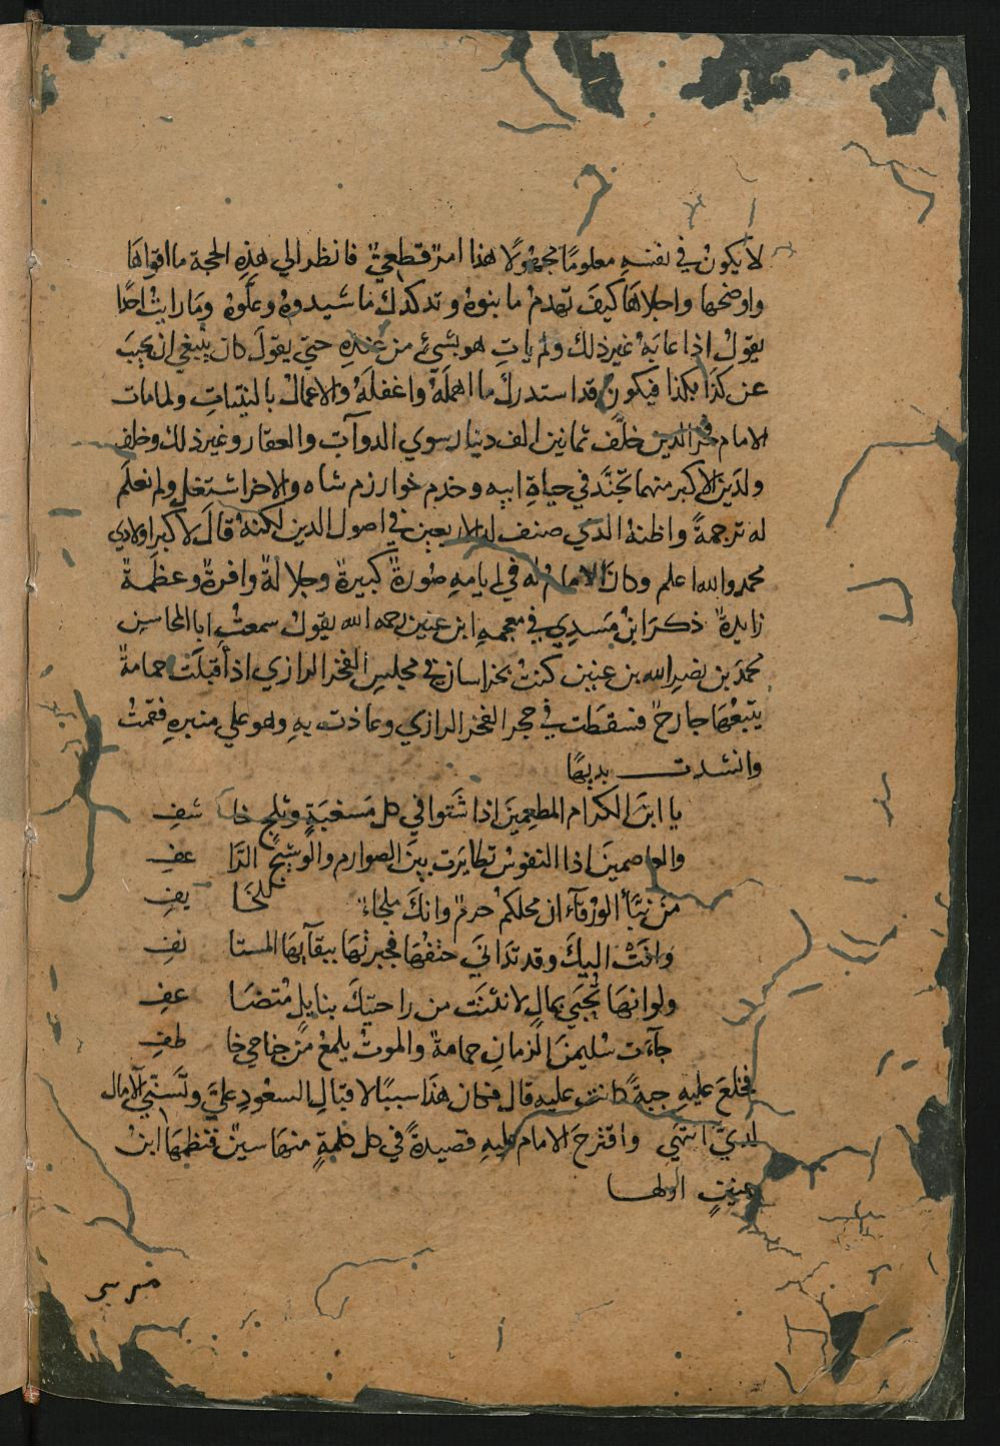 لا يكونُ في نفسهِ معلومًا مجهولًا هذا امرٌ قطعيٌّ فانظر الي هذِهِ الحجة ما اقواهَا
واوضحها واجلاهَا كيفَ تهدمُ ما بنوهُ وتدكدك ما شيدوهُ وعلَّوهُ ومَا رايتُ احدًا
يقولُ اذا عابَهُ غيرذلك ولم ياتِ هو بشيءٍ من عندِهِ حتي يقولَ كان ينبغي ان يجيبَ
عن كذَا بكذا فيكونُ قد استدركَ ما اهملَهُ واغفلَهُ والاعمالُ بالنيّاتِ ولما مات
الامام فخر الدين خلَّف ثمانين الف دينار سوي الدوآبّ والعقار وغير ذلك وخلف
ولدَين الاكبر منهما تجنَّد في حياةِ ابيه وخدم خوارزم شاه والاخر اشتغل ولم نعلَم
له ترجمةً واظنهُ الذي صنف له الاربعين في اصول الدين لكنهُ قالَ لاكبر اولادي
محمد والله اعلم وكانَ الامامُ لهُ في ايامهِ صُورةٌ كبيرةٌ وجلالةٌ وافرةٌ وعظَمةٌ
زايدةٌ ذكرَ ابنُ مَسْدِي في معجمهِ ابن عنين رحمه الله يقولُ سمعتُ ابا المحاسن
محمدَ بن نصرِ الله بن عنين كنتُ بخراسان في مجلسِ الفخر الرازي اذ أقبلَت حمامةٌ
يتبعُهَا جارحٌ فسقطَت في حجر الفخر الرازي وعاذت بهِ وهو علي منبرهِ فقمتُ
وانشدت بديهًا
يا ابنَ الكرام المطعِمينَ اذا شَتَوا في كل مَسغبَةٍ وثلجٍ خا شفِ
والعاصمينَ اذا النفوسُ تطايَرت بينَ الصوارم والوشيجِ الرَّا عفِ
مَن نبَّأ الورْقآءَ ان محلكُم حرمٌ وانكَ ملجاءٌ للخَا يفِ
وَافَتْ اليكَ وقد تدَانَي حتفُهَا فحبوتَهَا ببقآيهَا المستا نفِ
ولوانهَا تُحبَي بمالٍ لانثنَت من راحتيكَ بنايلٍ مُتضَا عفِ
جآءَت سُليمنَ الزمانِ حمامةٌ والموتُ يلمعُ من جناحي خا طفِ
فخلعَ عليهِ جبةً كانت عليه قال فكان هذَا سببًا لاقبالِ السعودِ عليَّ وتَسَنّي الآمال
لديّ انتهَي واقترحَ الامام عليهِ قصيدةً في كل كلمةٍ منهَا سينٌ فنظمَهَا ابنُ
عنينٍ اولها